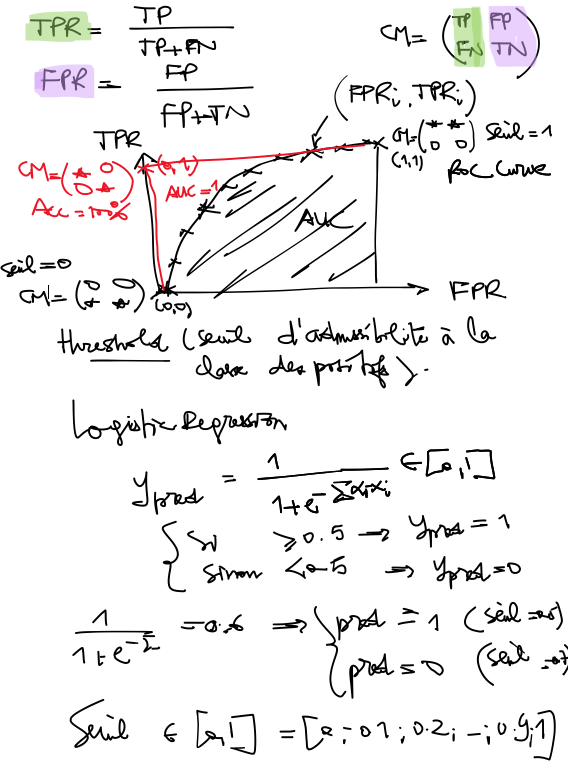 TPR = TP / TP+FN
CM = (TP FP
FN TN)
FPR = FP / FP+TN
(FPRi, TPRi)
TPR
CM = (* *
0 0) Seuil = 1
(1,1)
ROC Curve
CM = (* 0
0 *)
(0,1)
Acc = 100%
AUC = 1
AUC
Seuil = 0
CM = (0 0
* *)
(0,0)
FPR
threshold (seuil d'admissibilité à la
classe des positifs).
Logistic Regression
ypred = 1 / 1+e^-Σαixi ∈ [0,1]
Si ≥ 0.5 → ypred = 1
sinon < 0.5 ⇒ ypred = 0
1 / 1+e^-Σ = 0.6 ⇒ pred = 1 (seuil = 0.5)
pred = 0 (seuil = 0.7)
Seuil ∈ [0,1] = [0; 0.1; 0.2; -; 0.9; 1]